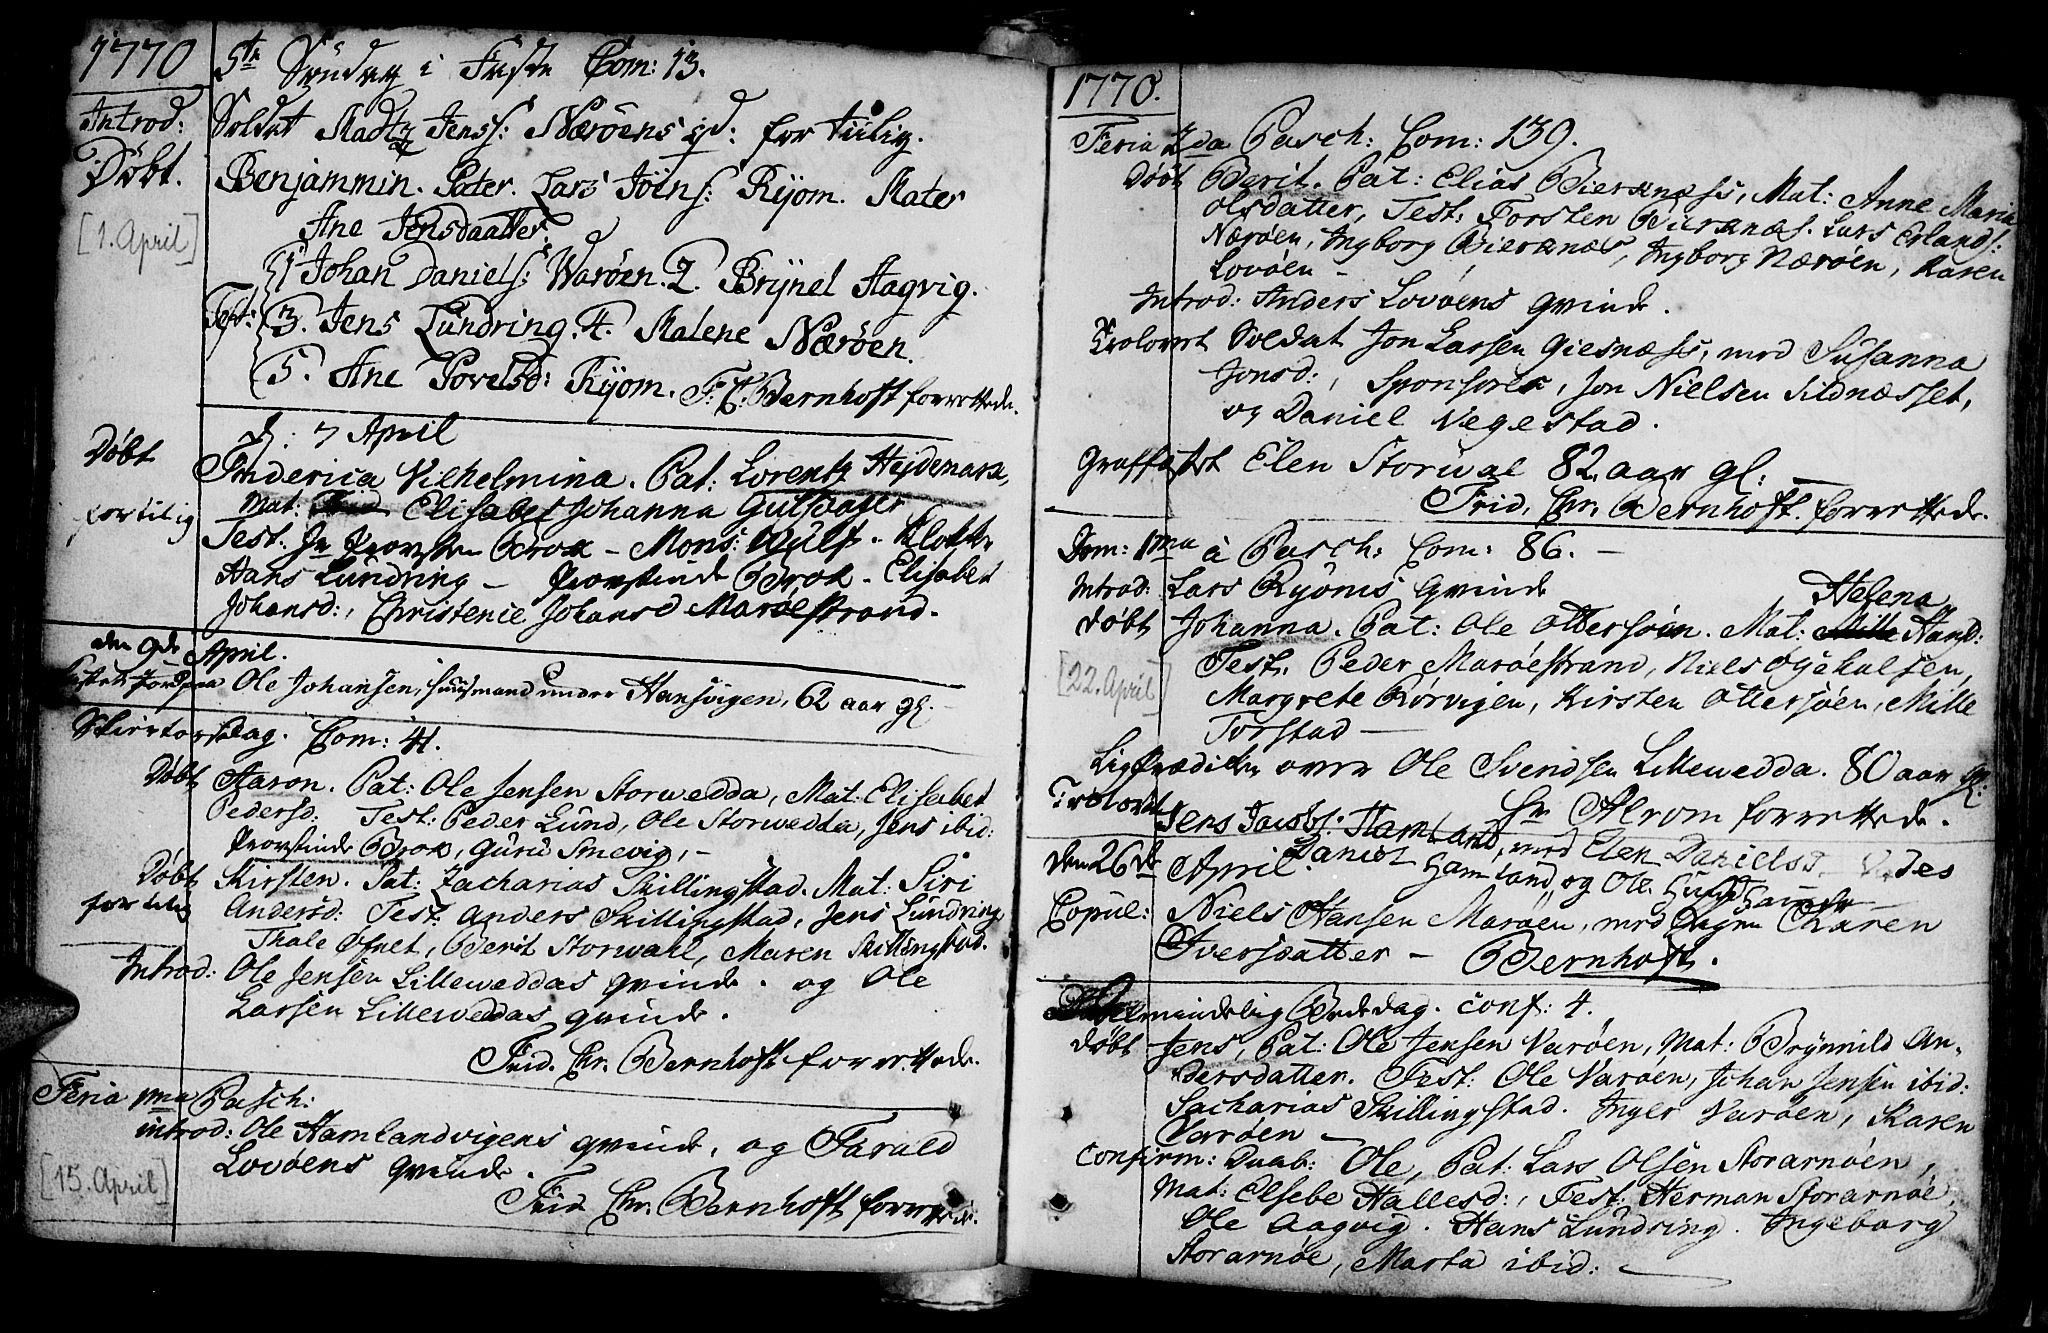 1770
5te Søndag i Faste Com: 13.
Introd: Soldat Madtz Jenss: Nærøens qd: for tiilig.
Døbt. Benjammin. Pater. Lars Jöins: Ryom. Mater
[1. April] Ane Jensdaatter:
1 Johan Daniels: Warøen. 2. Brynel Aagvig.
Test: 3. Jens Lundring. 4. Malene Nærøen.
5. Ane Povelsd: Ryom. F: C. Bernhoft forrettede.
D: 7 April
Døbt Friderica Vilhelmina. Pat: Lorentz Heydemark,
for tilig Mat: Elisabet Johanna Gulsdager
Test. Hr Provsten Brok - Mons: Wulf - Klokk:
Hans Lundring - Provstinde Brok - Elisabet
Johansd:, Christence Johansd Marøestrand.
den 9de April.
kastet Jord paa Ole Johansen, Huusmand under Hansvigen, 62 aar gl.
Skiertorsdag. Com: 41.
Døbt Aaron. Pat: Ole Jensen Storwedda, Mat: Elisabet
Pedersd: Test: Peder Lund, Ole Storwedda, Jens ibid:
Provstinde Brok, Guru Smevig, -
Døbt Kirsten. Pat: Zacharias Skillingstad. Mat: Siri
for tilig Andersd: Test: Anders Skillingstad, Jens Lundring
Thale Ofnet, Berit Storwahl, Maren Skillingstad.
Introd: Ole Jensen Lilleweddas qvinde. og Ole
Larsen Lilleweddas qvinde.
Frid. Chr. Bernhoft forrettede.
Feria 1ma Pasch:
introd: Ole Hamlandvigens qvinde, og Farald
[15. April] Lovøens qvinde.
Frid Chr. Bernhoft forrettede.
1770.
Feria 2da Pasch: Com: 139.
Døbt Berit. Pat: Elias Bieraknæs, Mat: Anne Maria
Olsdatter, Test: Torsten Bieraknæs. Lars Erlands:
Nærøen, Ingborg Bieraknæs, Ingborg Nærøen, Karen
Lovøen -
Introd: Anders Lovøens qvinde.
Trolovet Soldat Jon Larsen Giesnæss, med Susanna
Jonsd:, Sponsores, Jon Nielsen Sildnæsset,
og Daniel Vegestad.
Graffæstet Elen Storwal 82. aar gl: -
Frid. Chr. Bernhoft. forrettede.
Dom: 1ma à Pasch: Com: 86. -
Introd: Lars Ryoms qvinde
Helena
Døbt Johanna. Pat: Ole Ottersøen. Mat: Mille Hand:
[22. April] Test. Peder Marøestrand, Niels Opekalsen,
Margrete Rørvigen, Kirsten Ottersøen, Mille
Torstad -
Ligprædiken over Ole Svendsen Lillewedda. 80 aar gl:
Hr Alrom forrettede.
Trolovet Jens Jacobs: Hamland, med Elen Danielsd
Daniel Hamland, og Ole
den 26de April.
Copul: Niels Hansen Marøen, med Karen
Iversdatter - Bernhoft.
Almindelig Bededag. Conf: 4.
Døbt Jens, Pat: Ole Jensen Varøen, Mat: Brynnild An-
dersdatter. Test: Ole Varøen, Johan Jensen ibid:
Sacharias Skillingstad. Inger Varøen, Karen
Varøen -
Confirm: Daab: Ole, Pat: Lars Olsen Storarnøen,
Mat: Elsebe Hallesd:, Test: Herman Storarnøe,
Ole Aagvig. Hans Lundring. Ingeborg
Storarnøe, Marta ibid: